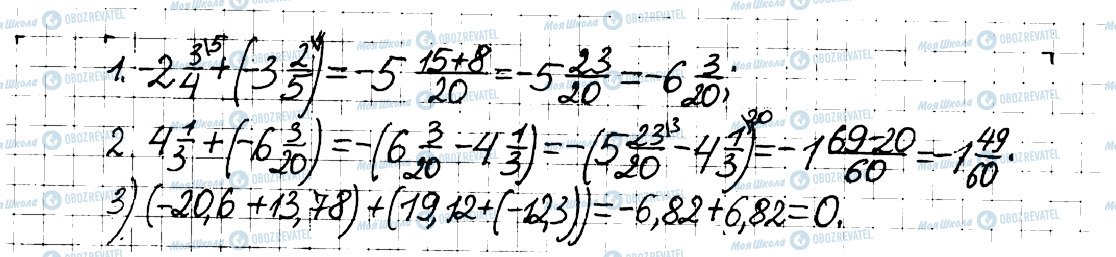 1. -2 3/4 + (-3 2/5) = -5 (15+8)/20 = -5 23/20 = -6 3/20;
2. 4 1/3 + (-6 3/20) = -(6 3/20 - 4 1/3) = -(5 23/20 - 4 1/3) = -1 (69-20)/60 = -1 49/60.
3) (-20,6 + 13,78) + (19,12 + (-12,3)) = -6,82 + 6,82 = 0.